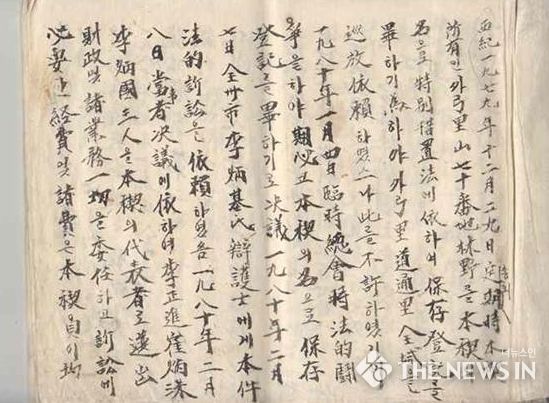 西紀一九七九年十二月二九日 定期時 本
所有인 外弓里山七十番地林野를 本 楔
名으로 特別措置法에 依하여 保存登記를
畢하기 爲하야 外弓里 道通里 全域을
放依賴하였으나 此를 不許하였기
一九八十年 一月 四日 臨時總會時 法的鬪
爭을 하야 期必고 本楔의 名으로 保存
登記를 畢하기로 決議 一九八十年 二月
七日 全州市 李炳基氏 辯護士에게 本件
法的 訴訟을 依賴하였음 一九八十年 二月
八日 當事者 決議에 依하여 李正進 崔炳洙
李炳國 三人을 本楔의 代表者로 選出
財政및 諸業務 一切을 委任하고 訴訟에
必要한 経費및 諸費은 本楔員이 均
더뉴스인
THE NEWS IN